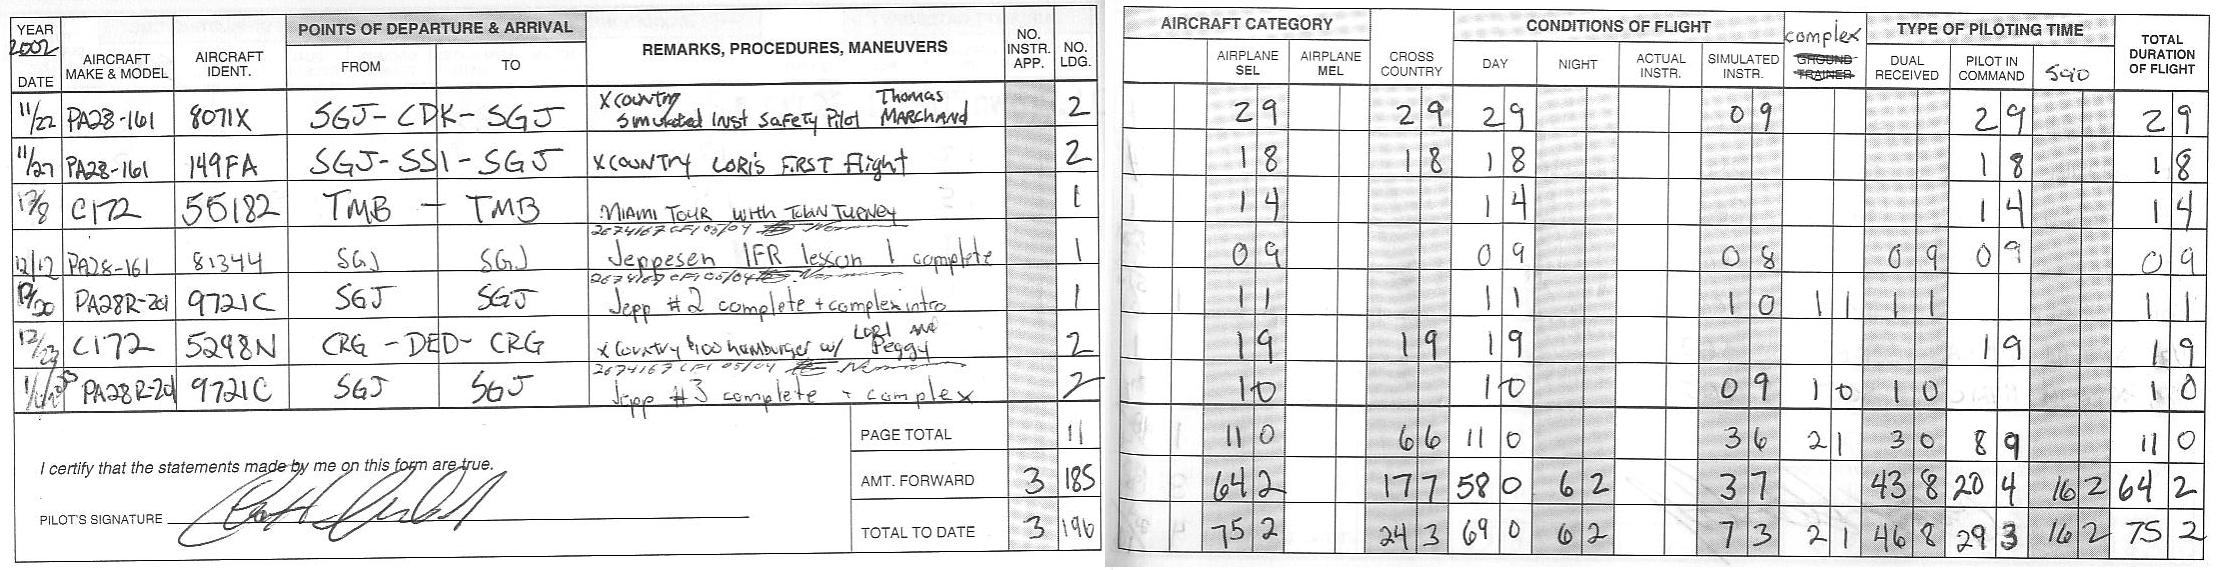 YEAR 2002 DATE AIRCRAFT MAKE & MODEL AIRCRAFT IDENT. POINTS OF DEPARTURE & ARRIVAL FROM TO REMARKS, PROCEDURES, MANEUVERS NO. INSTR. APP. NO. LDG. AIRCRAFT CATEGORY AIRPLANE SEL AIRPLANE MEL CROSS COUNTRY CONDITIONS OF FLIGHT DAY NIGHT ACTUAL INSTR. SIMULATED INSTR. complex GROUND TRAINER TYPE OF PILOTING TIME DUAL RECEIVED PILOT IN COMMAND solo TOTAL DURATION OF FLIGHT
11/22 PA28-161 8071X SGJ-CDK-SGJ X country Simulated Inst Safety Pilot Thomas MARCHAND 2 2 9 2 9 2 9 0 9 2 9 2 9
11/27 PA28-161 149FA SGJ-SSI-SGJ X COUNTRY LORI'S FIRST Flight 2 1 8 1 8 1 8 1 8 1 8
12/8 C172 55182 TMB - TMB MIAMI TOUR with 1 1 4 1 4 1 4 1 4
2674167 CFI 05/04
12/12 PA28-161 81344 SGJ SGJ Jeppesen IFR lesson 1 complete 1 0 9 0 9 0 8 0 9 0 9 0 9
2674167 CFI 05/04
12/20 PA28R-201 9721C SGJ SGJ Jepp #2 complete + complex intro 1 1 1 1 1 1 0 1 1 1 1 1 1
12/23 C172 5298N CRG - DED - CRG X Country $100 hamburger w/ LORI AND Peggy 2 1 9 1 9 1 9 1 9 1 9
2674167 CFI 05/04
PA28R-201 9721C SGJ SGJ Jepp #3 complete + complex 2 1 0 1 0 0 9 1 0 1 0 1 0
PAGE TOTAL 11 11 0 6 6 11 0 3 6 2 1 3 0 8 9 11 0
I certify that the statements made by me on this form are true.
AMT. FORWARD 3 185 64 2 17 7 58 0 6 2 3 7 43 8 20 4 16 2 64 2
PILOT'S SIGNATURE
TOTAL TO DATE 3 196 75 2 24 3 69 0 6 2 7 3 2 1 46 8 29 3 16 2 75 2